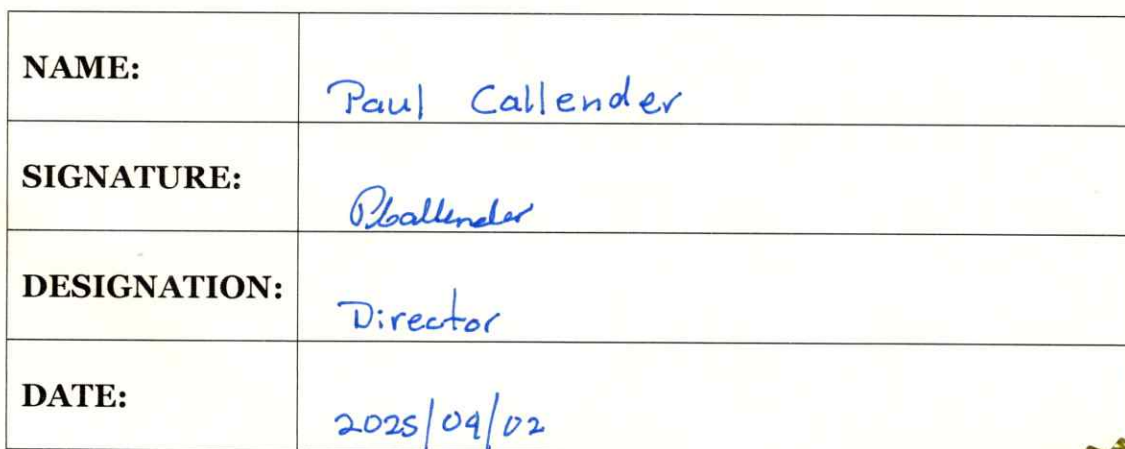 NAME: Paul Callender
SIGNATURE: PCallender
DESIGNATION: Director
DATE: 2025/09/02